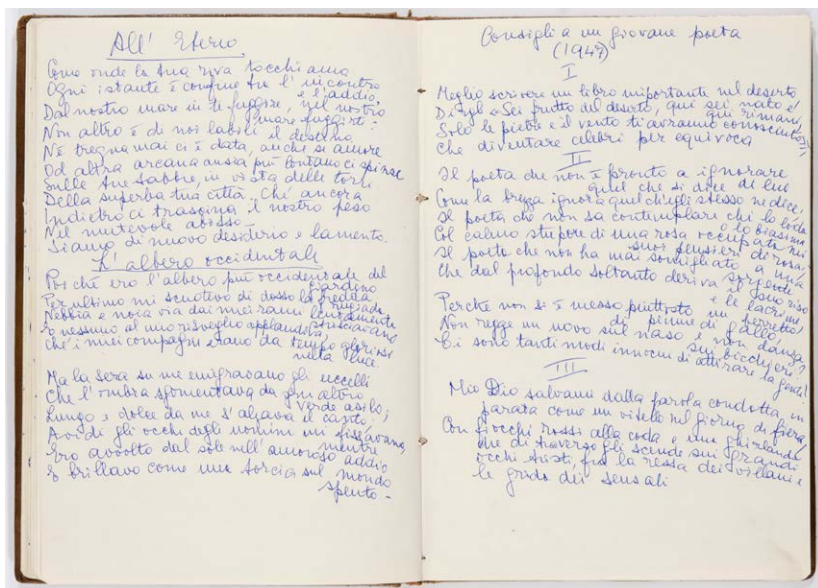 All' Eterno
Come onde la tua riva tocchiamo
Ogni istante è confine tra l'incontro
e l'addio,
Dal nostro mare in te fuggire, nel nostro
mare fuggirti:
Non altro è di noi labili il destino
Nè tregua mai ci è data, anche se amore
Od altra arcana ansia più lontano ci spinse
Sulle tue sabbie, in vista delle torri
Della superba tua città. Chè ancora
Indietro ci trascina il nostro peso
Nel mutevole abisso -
Siamo di nuovo desiderio e lamento.
L'albero occidentale
Poi che ero l'albero più occidentale del
giardino
Per ultimo mi scuotevo di dosso la fredda
rugiada
Nebbia e noia via dai miei rami lentamente
strisciavano
E nessuno al mio risveglio applaudiva,
che i miei compagni erano da tempo gloriosi
nella luce.
Ma la sera su me emigravano gli uccelli
Che l'ombra sgomentava da ogni altro
verde asilo;
Lungo e dolce da me s'alzava il canto,
Avidi gli occhi degli uomini mi fissavano,
mentre
Ero avvolto dal sole nell'amoroso addio
E brillavo come una torcia sul mondo
spento -
Consigli a un giovane poeta
(1947)
I
Meglio scrivere un libro importante nel deserto
Di gel sei frutto del deserto, qui sei nato e
qui rimani,
Solo le pietre e il vento ti avranno conosciuto,
che diventare celebri per equivoco
II
Il poeta che non è pronto a ignorare
quel che si dice di lui
Come la brezza ignora quel ch'egli stesso ne dice,
Il poeta che non sa contemplare chi lo loda
o lo biasima
Col calmo stupore di una rosa occupata nei
suoi pensieri di rosa
Il poeta che non ha mai somigliato a una
sorgente
che dal profondo soltanto deriva il suo riso
e le lacrime
Perchè non si è messo piuttosto un berretto
di piume di gallo,
Non regge un uovo sul naso e non danza
sui bicchieri?
Ci sono tanti modi innocui di attirare la gente!
III
Mio Dio salvami dalla parola condotta, im
parata come un vitello nel giorno di fiera,
Con fiocchi rossi alla coda e una ghirlanda
che di traverso gli scende sui grandi
occhi tristi, fra la ressa dei villani e
le grida dei sensali